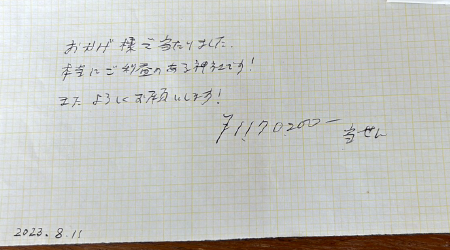 おかげ様で当たりました。
本当にご利益のある神社です!
またよろしくお願いします!
¥1170200ー
当せん
2023.8.11